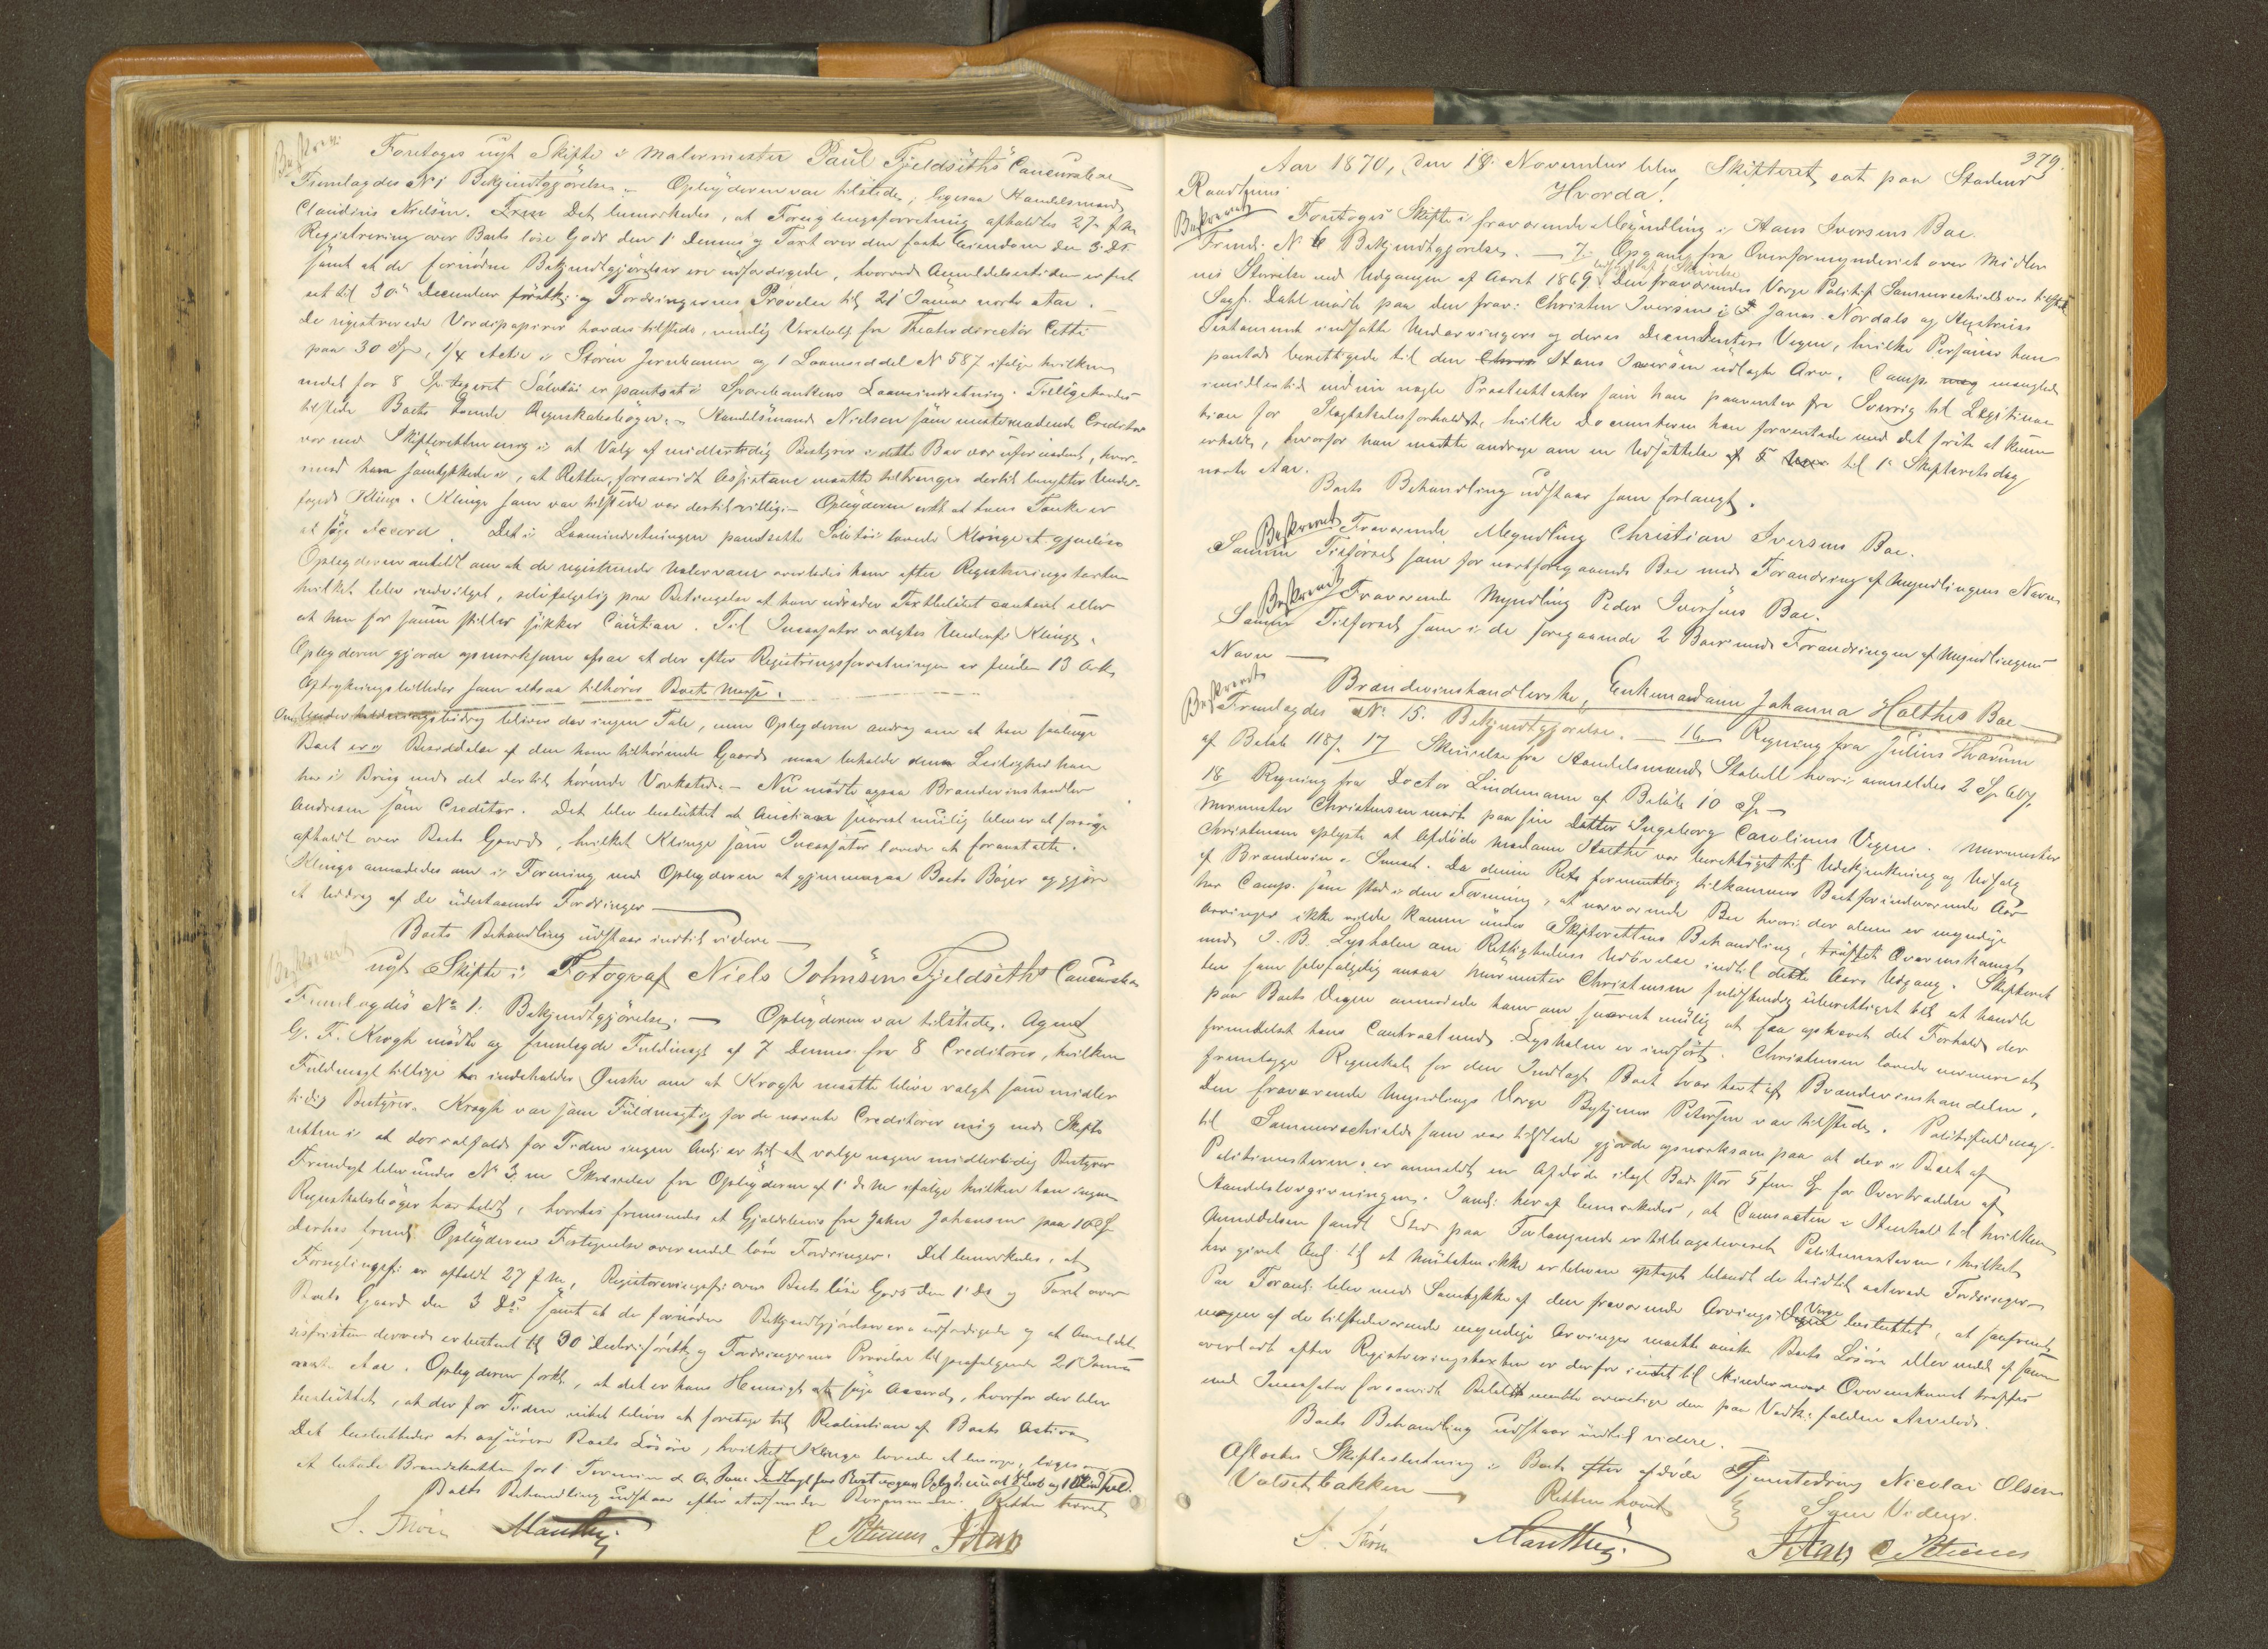 Foretoges nyt Skifte i Malermester Paul Fjeldseths Concursboe
Fremlagdes No 1 Bekjendtgjørelse. – Opbyderen var tilstede, ligesaa Handelsmand
Claudius Nielsen. Det bemærkedes, at Forseglingsforretning afholdtes 27 f. M.
Registrering over Boets løse Gods den 1 Dennes og Taxt over den faste Eiendom den 3 Ds.
samt at de fornødne Bekjendtgjørelser ere udfærdigede, hvorved Anmeldelsestiden er fast
sat til 30 December førstk. og Fordringernes Prøvelse til 21 Januar næste Aar.
De registrerede Værdipapirer havdes tilstede, nemlig Vexel fra Theaterdirectør Cetti
paa 30 Sp, 1/4 Actie i Støren Jernbanen og 1 Laaneseddel No 587 ifølge hvilken
endel for 8 Sp. Sølvtøi er pantsat i Sparebankens Laaneindretning. Tillige havdes
tilstede Boets Regnskabsbøger. – Handelsmand Nielsen som mødende Creditor
var med Skifteretten enig i at Valg af midlertidig Bestyrer i dette Boe var ufornødent, hvor-
imod han samtykkede i, at Retten, forsaavidt Assistance maatte tiltrænges dertil benytter Under-
foged Klinge. Klinge som var tilstede var dertil villig. – Opbyderen at hans Tanke er
at søge Accord. Det i Laaneindretningen pantsatte Sølvtøi lovede Klinge at gjenløse
Opbyderen anholdt om at de registrerede Malervarer overlodes ham efter Registreringstaxten
hvilket blev indvilget, selvfølgelig paa Betingelse at han udreder Taxtbeløbet contant eller
at han for samme stiller sikker Caution. Til Incassator valgtes Underf. Klinge.
Opbyderen gjorde opmærksom paa at der efter Registreringsforretningen er funden 13 Ark
som altsaa tilhører Boets Masse.
Om Underholdningsbidrag bliver der ingen Tale, men Opbyderen androg om at han saalænge
Boet er i Besiddelse af den ham tilhørende Gaard maa beholde den Leilighed han
har i Brug med det dertil hørende Værksted. – Nu mødte ogsaa Brændevinshandler
Andresen som Creditor. Det blev besluttet at Auction snarest mulig bliver at forsøge
afholdt over Boets Gaard, hvilket Klinge som Incassator lovede at foranstalte.
Klinge anmodedes om i Forening med Opbyderen at gjennemgaa Boets Bøger og gjøre
et Uddrag af de udestaaende Fordringer
Boets Behandling udstaar indtil videre
nyt Skifte i Fotograf Niels Johnsen Fjeldseths Concursboe
Fremlagdes No 1. Bekjendtgjørelse. – Opbyderen var tilstede. Agent
G. F. Krogh mødte og fremlagde Fuldmagt af 7 Dennes fra 8 Creditorer, hvilken
Fuldmagt tillige indeholder Ønske om at Krogh maatte blive valgt som midler
tidig Bestyrer. Krogh var som Fuldmægtig for de nævnte Creditorer enig med Skifte
retten i at der ialfald for Tiden ingen Anl. er til at vælge nogen midlertidig Bestyrer
Fremlagt blev under No 3 en Skrivelse fra Opbyderen af 1 d. M. ifølge hvilken han ingen
Regnskabsbøger har holdt, hvorhos fremsendes et Gjældsbevis fra John Johansen paa 10 Sp
Derhos freml. Opbyderen Fortegnelse over endel løse Fordringer. Det bemærkedes, at
Forseglingsf. er afholdt 27 f. M., Registreringsf. over Boets løse Gods den 1 Ds og Taxt over
Boets Gaard den 3 Ds. samt at de fornødne Bekjendtgjørelser ere udfærdigede og at Anmeldel
sesfristen derved er bestemt til 30 Decbr. førstk. og Fordringernes Prøvelse til paafølgende 21 Januar
næste Aar. Opbyderen forkl., at det er hans Hensigt at søge Accord, hvorfor der blev
besluttet, at der for Tiden intet bliver at foretage til Realisation af Boets Activa
Det besluttedes at assurere Boets Løsøre, hvilket Klinge lovede at besørge, ligesom
at betale Brandskatten for 1 Termin
Boets Behandling udstaar efter Retten hævet
S. Thoen Manthey C Petersen
379.
Aar 1870, den 18 November blev Skifteret sat paa Stadens
Raadhuus
Hvorda!
Foretoges Skifte i fraværende Myndling i Hans Iversens Boe.
Freml. No 6 Bekjendtgjørelse. – 7 Opgave fra Overformynderiet over Midler
nes Størrelse ved Udgangen af Aaret 1869. Den fraværendes Værge Politif. Sommerschield var tilstede
Sagf. Dahl mødte paa den frav. Christen Iversens Jonas Nordals og Hustrues
Testament indsatte Underarvingers og deres Descendenters Vegne, hvilke Personer han
paastod berettigede til den Hans Iversen udlagte Arv. Comp. manglede
imidlertid endnu nogle Præsteattester som han paaventer fra Sverrig til Legitima
tion for Slægtskabsforholdet, hvilke Documenter han forventede med det første at kunne
erholde, hvorfor han maatte androge om en Udsættelse til 1 Skifteretsdag
næste Aar.
Boets Behandling udstaar som forlangt.
Beskrevet
Fraværende Myndling Christian Iversens Boe.
Samme Tilførsel som for næstforegaaende Boe med Forandring af Myndlingens Navn
Beskrevet
Fraværende Myndling Peder Iversens Boe.
Samme Tilførsel som i de foregaaende 2 Boer med Forandringen af Myndlingens
Navn –
Beskrevet
Brændevinshandlerske, Enkemadame Johanna Holthes Boe –
Fremlagdes No 15. Bekjendtgjørelse. – 16 Regning fra Julius Thorum
af Beløb 118 s. 17 Skrivelse fra Handelsmand Stabell hvori anmeldes 2 Sp
18 Regning fra Doctor Lindemann af Beløb 10 Sp –
Murmester Christensen mødt paa sin Datter Ingeborg Carolines Vegne. Murmester
Christensen oplyste at Afdøde Madame Holthe var berettiget til Udskjænkning og Udsalg
af Brændevin i Smaat. Da denne Ret formentlig tilkommer Boet for indeværende Aar
har Comp. som stod i den Formening, at nærværende Boe hvori der alene er myndige
Arvinger ikke vilde komme under Skifterettens Behandling, truffet Overenskomst
med I. B. Lysholm om Rettighedens Udøvelse indtil dette Aars Udgang. Skifteret
ten som selvfølgelig ansaa Murmester Christensen fuldstændig uberettiget til at handle
paa Boets Vegne anmodede ham om snarest mulig at faa ophævet det Forhold der
formedelst hans Contract med Lysholm er indført. Christensen lovede nærmere at
fremlægge Regnskab for den Indtægt Boet har havt af Brændevinshandelen.
Den fraværende Myndlings Værge Bytjener Petersen var tilstede. Politifuldmæg-
til Sommerschield som var tilstede gjorde opmærksom paa at der i Boet af
Politimesteren er anmeldt en Afdøde ilagt Bod stor 5 fem Sp for Overtrædelse af
Handelslovgivningen. I Anl. heraf bemærkedes, at til hvilken
Anmeldelsen fandt Sted paa Forlangende er tilbageleveret Politimesteren, hvilket
har givet Anl. til at Mulcten ikke er bleven optaget blandt de hidtil noterede Fordringer
Paa Foranl. blev med Samtykke af den fraværende Arvings Værge besluttet, at saafremt
nogen af de tilstedeværende myndige Arvinger maatte ønske Boets Løsøre eller endel af samme
overladt efter Registreringstaxten er derfor intet til Hinder naar Overenskomst træffes
med Incassator forsaavidt Beløbet maatte overstige den paa Vedk. faldne Arvelod.
Boets Behandling udstaar indtil videre.
Afloedes Skiftesbeslutning i Boet efter afdøde Tjenestedreng Nicolai Olsen
Valsetbakken –
Retten hævet
S. Thoen Manthey C Petersen